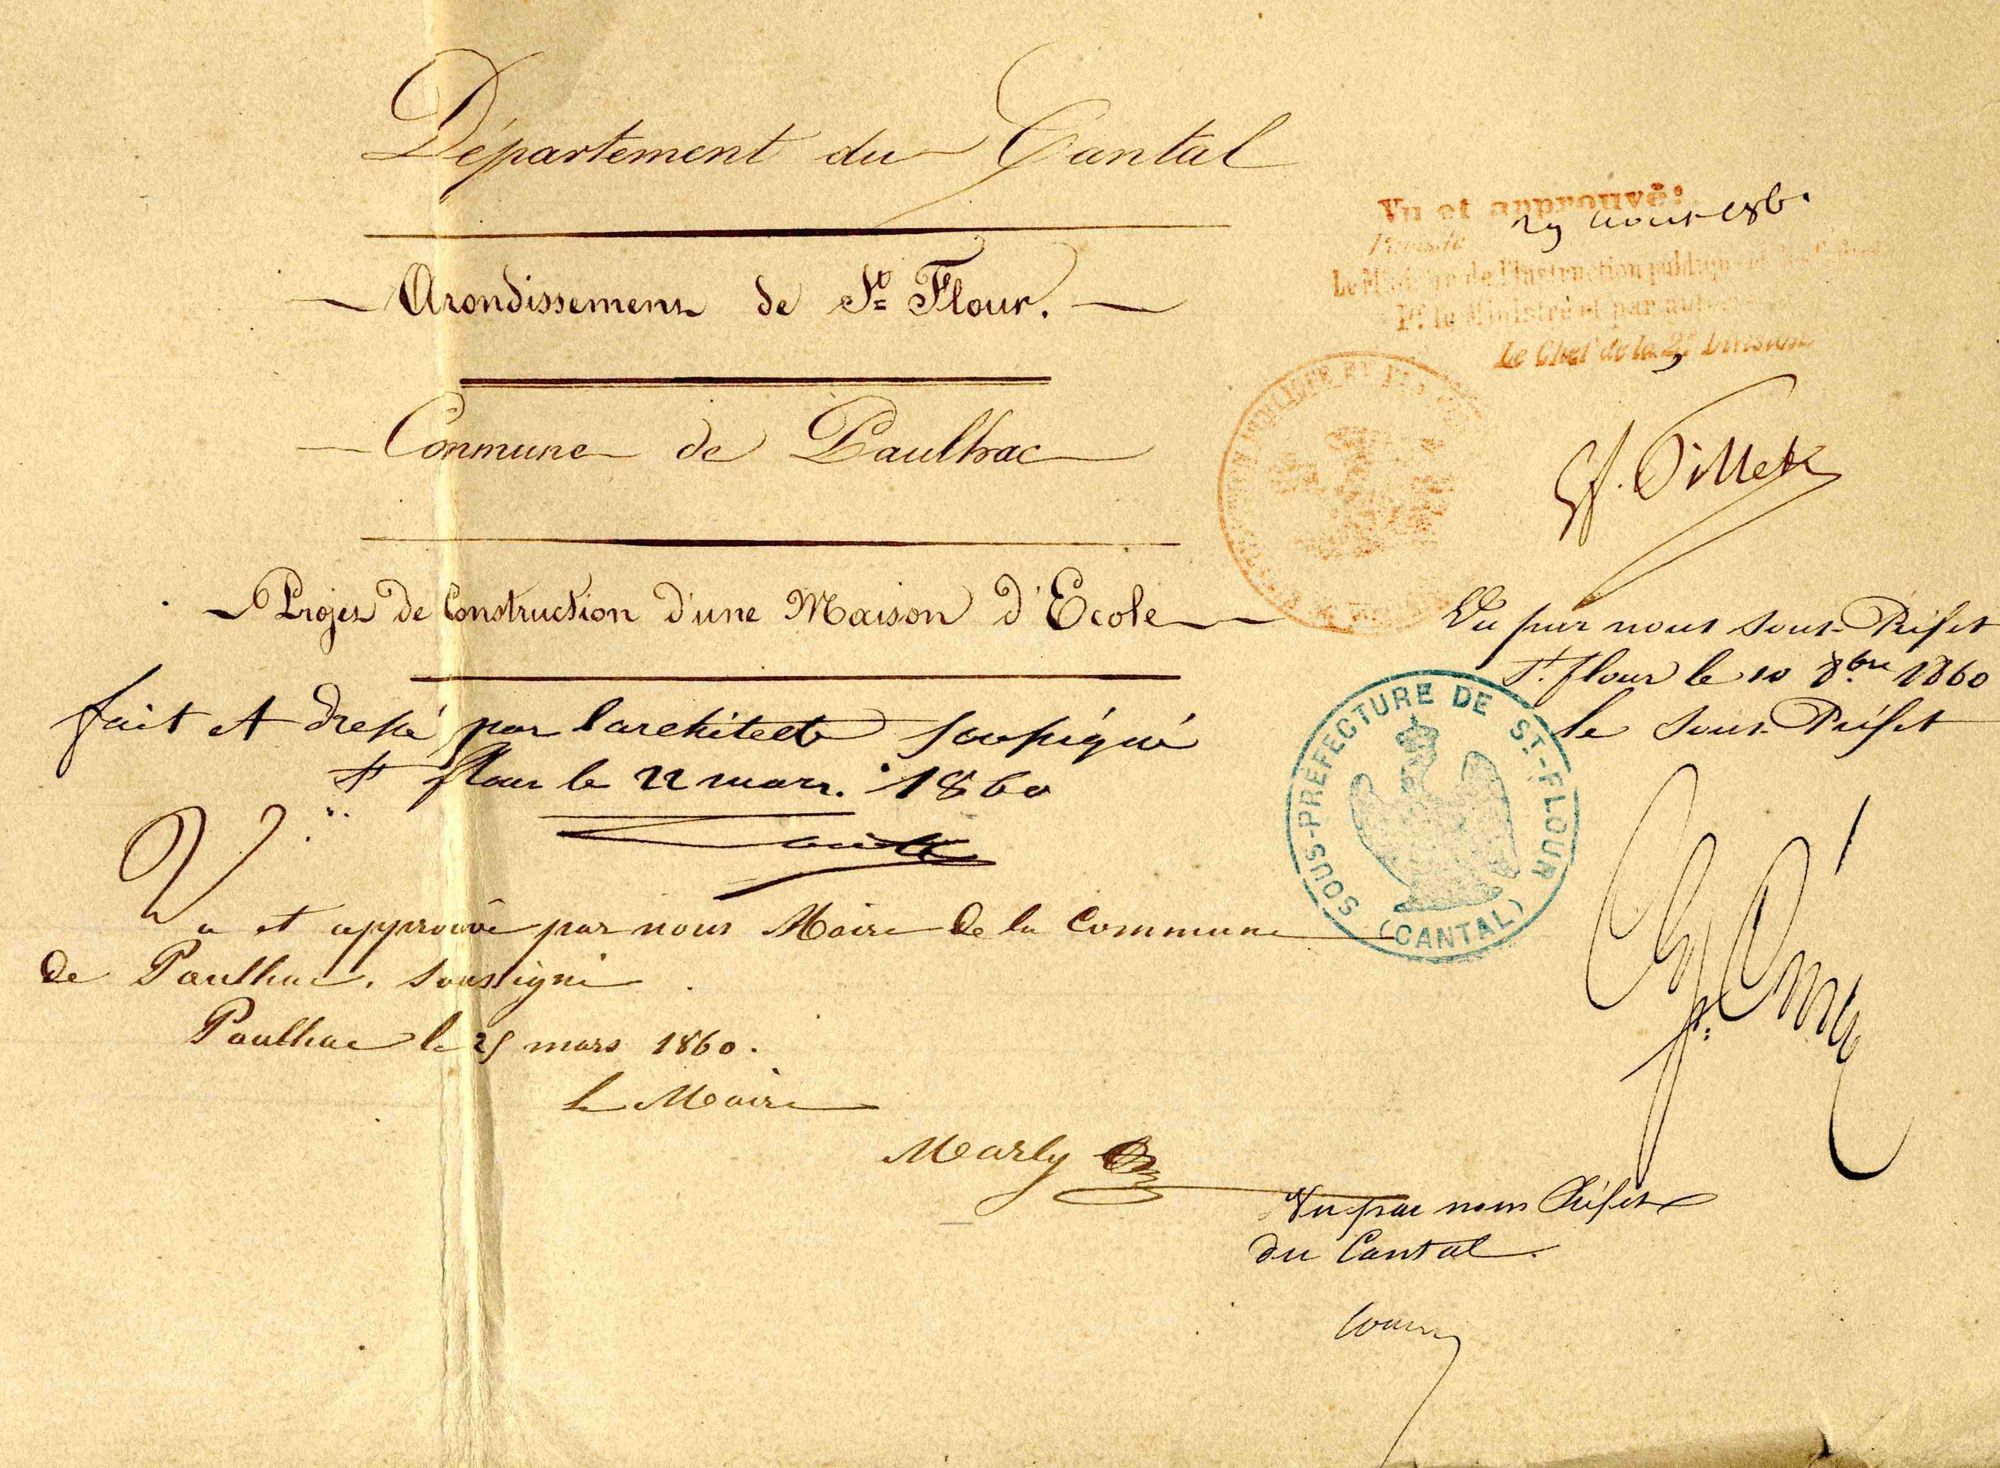 Département du Cantal
Arondissement de St Flour.
Commune de Paulhac
Projet de Construction d'une Maison d'Ecole
fait et dressé par l'architecte soussigné
St flour le 22 mars. 1860
Vu et approuvé par nous Maire de la Commune
de Paulhac, soussigné
Paulhac le 25 mars 1860.
le Maire
Marly
Vu et approuvé:
29 aout 186
Le Ministre de l'Instruction publique et des Cultes
Pr. le Ministre et par
Le Chef de la 2e Division
Pillet
Vu par nous Sous-Préfet
St. flour le 10 8bre 1860
le Sous-Préfet
SOUS-PRÉFECTURE DE ST.-FLOUR
(CANTAL)
Vu par nous Préfet
du Cantal.